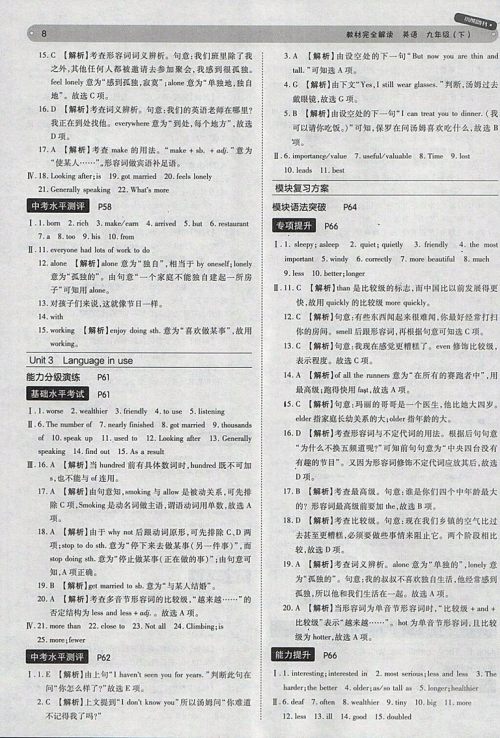 8
教材完全解读 英语 九年级(下)
15. C 【解析】考查形容词词义辨析。句意:我们班里除了我
之外,其他任何人都被邀请去参加聚会,我感到很孤独。
feel lonely 意为“感到孤独,寂寞”;alone 意为“单独地,独自
地”。故选 C 项。
16. D 【解析】考查词义辨析。句意:我们的英语老师在哪里?
我正在到处找他。everywhere 意为“到处,每个地方”,故选
D 项。
17. A 【解析】考查 make 的用法。“make + sb. + adj.”意为
“使某人……”,形容词做宾语补足语。
Ⅳ. 18. Looking after;is 19. got married 20. feels lonely
21. Generally speaking 22. What's more
中考水平测评 P58
Ⅰ. 1. born 2. rich 3. make/earn 4. arrived 5. but 6. restaurant
7. a 8. too 9. his 10. much
Ⅱ. 11. everyone had lots of work to do
12. alone 【解析】alone 意为“独自”,相当于 by oneself;lonely
意为“孤独的”。由句意“一个家庭不能独自建起一所房
子”可知用 alone。
13. 对孩子们来说,这就像节日一样。
14. with
15. working 【解析】enjoy doing sth. 意为“喜欢做某事”,故用
working。
Unit 3 Language in use
能力分级演练 P61
基础水平考试 P61
Ⅰ. 1. worse 2. wealthier 3. friendly 4. to use 5. listening
Ⅱ. 6. The number of 7. nearly finished 8. got married 9. thousands
of 10. speak up 11. used to 12. Looking after 13. Generally
speaking 14. find out 15. As a result
Ⅲ. 16. A 【解析】当 hundred 前有具体数词时,hundred 既不可加
s,也不能与 of 连用。
17. A 【解析】由句意知,smoking 与 allow 是被动关系,可先排
除 C 项,Smoking 是动名词做主语,谓语动词用单数,故选 A
项。
18. D 【解析】由于 why not 后跟动词原形,可先排除 C、D 两
项;stop to do sth. 意为“停下来去做某事(另一件事)”,而
stop doing sth. 意为“停止做某事(正在做的事)”;由句意可
知,A 项正确。
19. B 【解析】get married to sb. 意为“与某人结婚”。
20. A 【解析】考查多音节形容词的比较级,“越来越……”的
否定结构为 less and less + adj.。故选 A 项。
Ⅳ. 21. more than 22. close to 23. Not all 24. Climbing;is
25. more;fewer
中考水平测评 P62
Ⅰ. 1. E 【解析】由上句“I haven't seen you for years.”判断此句在
问“你怎么样了?”故选 E 项。
2. C 【解析】上文提到“I don't know”所以汤姆问“你难道
不记得我了吗?”
3. A 【解析】由设空处的下一句“But now you are thin and
tall.”可知选 A 项。
4. G 【解析】由下文“Yes, I still wear glasses.”判断,汤姆过去
戴眼镜,故选 G 项。
5. B 【解析】由设空处的下一句“I can treat you to dinner.(我
可以请你吃饭。)”可知,保罗在问汤姆喜欢吃什么,故选 B
项。
Ⅱ. 6. importance/value 7. useful/valuable 8. Time 9. lost
10. leads 11. best
模块复习方案
模块语法突破 P64
专项提升 P66
Ⅰ. 1. sleepy;asleep 2. quiet;quietly 3. friendly 4. the most
important 5. widely 6. correctly 7. more beautiful 8. much
9. less 10. better;longer
Ⅱ. 11. C 【解析】than 是比较级的标志,而中国比以前发展得更
快,故用 quickly 的比较级 more quickly。
12. B 【解析】句意:有些东西闻起来很难闻,你最好经常打扫
你的房间。smell 后跟形容词,再根据句意可知选 B 项。
13. C 【解析】句意:我感觉更糟糕了。even 修饰比较级,
表示程度。故选 C 项。
14. A 【解析】of all the runners 意为“在所有的赛跑者中”,用
最高级;跑得快用 fast,故选 A 项。
15. C 【解析】句意:玛丽的哥哥是一个医生,他比她大四岁。
elder 指家庭长幼关系的大;older 指年龄的大。
16. D 【解析】考查形容词与不定代词的用法。根据后句句意
“为什么不换五频道呢?”可知前句句意为“中央四台没有
有趣的节目”。又因为形容词修饰不定代词应放其后,故选
D 项。
17. B 【解析】考查最高级。句意:谁是你们四个中年龄最大
的?形容词最高级前要加 the,故选 B 项。
18. D 【解析】考查比较级。句意:现在我们乡镇的空气比过
去甚至更糟糕,必须要做些事情来阻止它。两个阶段相比
较,故选 D 项。
19. A 【解析】考查词义辨析。alone 意为“单独的”,lonely 意
为“孤独的”。句意:我的叔叔不喜欢独自生活,他经常感到
孤独,所以他和我们生活在一起。故选 A 项。
20. A 【解析】当形容词为单音节形容词时,“比较级 + and +
比较级”表示“越来越……”。hot 为单音节形容词,且比较
级为 hotter,故选 A 项。
能力提升 P66
Ⅰ. 1. interesting;interested in 2. most serious;less and less 3. The
harder;the better 4. older;as/so tall as 5. longer;healthier
Ⅱ. 6. deaf 7. often 8. wealthier 9. tiny 10. big 11. more
12. less 13. ill 14. good 15. doubled